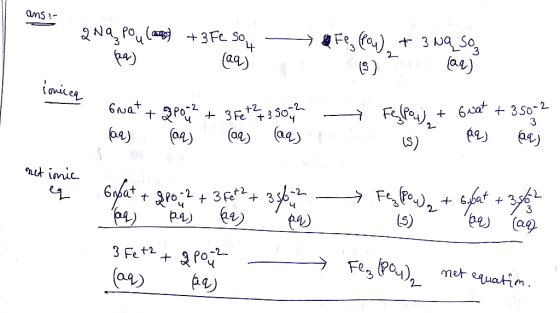 ans:-
2 Na3 PO4 (aq) + 3 Fe SO4 (aq) ⟶ Fe3 (PO4)2 (s) + 3 Na2 SO3 (aq)
ionic eq
6 Na+ (aq) + 2 PO4-2 (aq) + 3 Fe+2 (aq) + 3 SO4-2 (aq) ⟶ Fe3(PO4)2 (s) + 6 Na+ (aq) + 3 SO3-2 (aq)
net ionic eq
6 Na+ (aq) + 2 PO4-2 (aq) + 3 Fe+2 (aq) + 3 SO4-2 (aq) ⟶ Fe3 (PO4)2 (s) + 6 Na+ (aq) + 3 SO3-2 (aq)
3 Fe+2 (aq) + 2 PO4-2 (aq) ⟶ Fe3 (PO4)2 net equation.